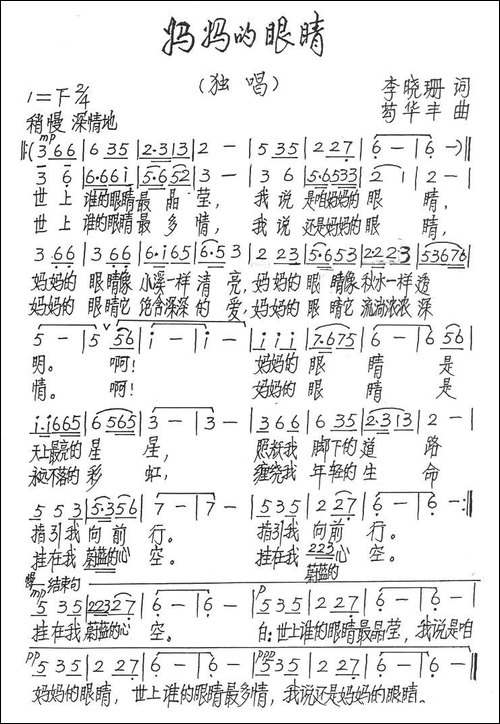 妈妈的眼睛
(独 唱)
李晓珊 词
1=F 2/4
苟华丰 曲
稍慢 深情地
mp
‖:(3 6 6 | 6 3 5 | 2·3 1 3 | 2 - | 5 3 5 | 2 2 7 | 6 - | 6 -)‖
3 6 | 6·6 6 i | 5·6 5 2 | 3 - | 3 6 | 5·6 5 3 3 | 2 1 | 2 - |
世 上 谁的眼睛最 晶 莹, 我 说 是咱妈妈的 眼 睛,
世 上 谁的眼睛最 多 情, 我 说 还是妈妈的 眼 睛,
3 6 6 | 3 6 6 | 6·i 6 5 | 6·5 3 | 2 2 3 | 5·6 5 3 | 2·2 2 3 | 5 3 6 7 6 |
妈妈的 眼 睛像 小溪一样 清 亮, 妈妈的 眼 睛像 秋水一样 透
妈妈的 眼 睛它 饱含深深 的 爱, 妈妈的 眼 睛它 流淌浓浓 深
5 - | 5 ∨ 5 6 | i - | i - | i i i | 7·6 7 5 | 6 - | 6 5 6 |
明。 啊! 妈妈的 眼 睛 是
情。 啊! 妈妈的 眼 睛 是
i·i 6 6 5 | 6 5 6 5 | 3 - | 3 - | 3 6 6 | 6 3 5 | 2·3 1 3 | 2 - |
天上最亮的 星 星, 照来我 脚下的 道 路
永远不落的 彩 虹, 缠绕我 年轻的 生 命
5 5 3 | 5·3 5 6 | 7 - | 7 - | 5 3 5 | 2 2 7 | 6 - | 6 - :‖
指引我 向 前 行。 指引我 向前 行。
挂在我 蔚蓝的心 空。 挂在我 2 2 3 心 空。
蔚蓝的
慢 结束句
mp
5 3 5 | 2 2 3 2 7 | 6 - | 6 - | p 5 3 5 | 2 2 7 | 6 - | 6 - |
挂在我 蔚蓝的心 空。 白:世上谁的眼睛最晶莹,我说是咱
pp 5 3 5 | 2 2 7 | 6 - | 6 - | ppp 5 3 5 | 2 2 7 | 6 - | 6 - ‖
妈妈的眼睛,世上谁的眼睛最多情,我说还是妈妈的眼睛。